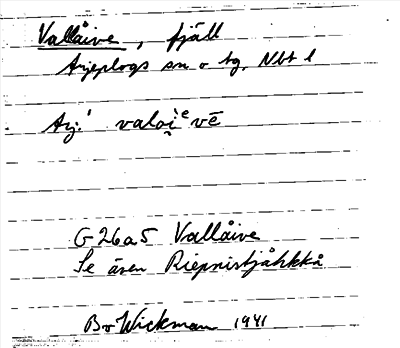 Vallåive, fjäll
Arjeplogs sn o tg, Nbt l
Arj.
G26a5 Vallåive
Se även Riepnistjåhkkå
Bo Wickman 1941